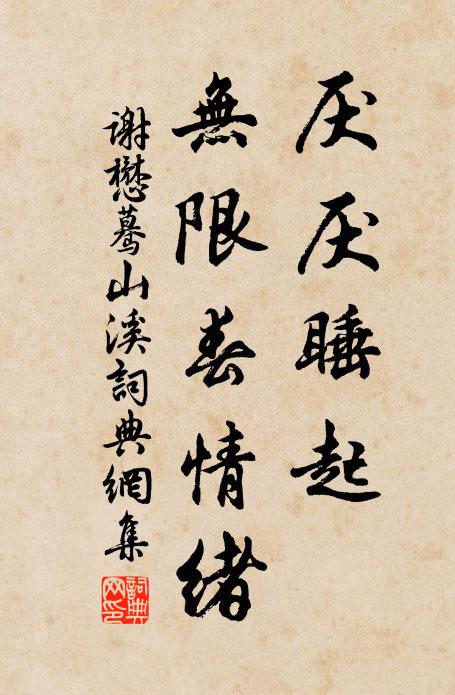 厌厌睡起
無限春情緒
谢懋蓦山溪詞典網集
詞典网印